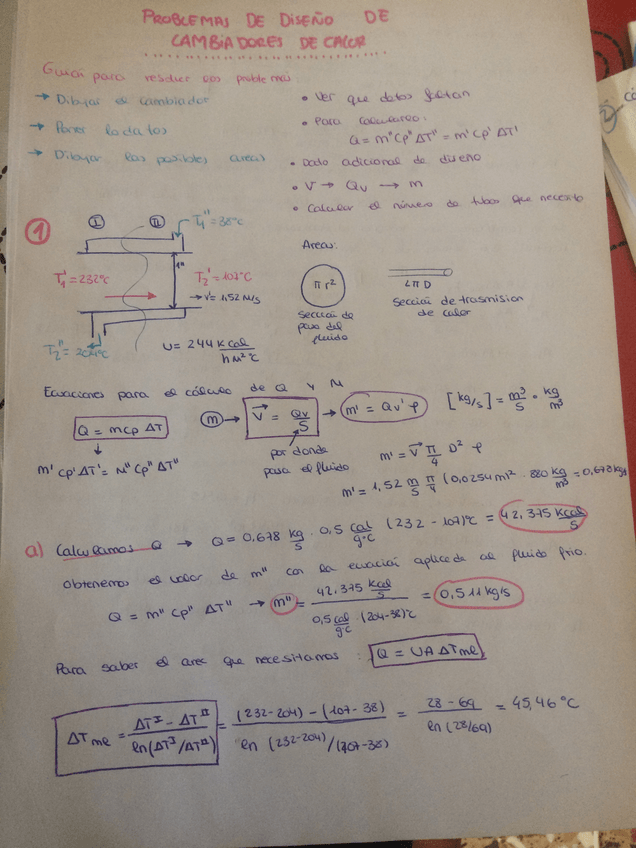 PROBLEMAS DE DISEÑO DE
CAMBIADORES DE CALOR
Guía para resolver los problemas
→ Dibujar el cambiador
→ Poner los datos
→ Dibujar las posibles areas
• Ver que datos faltan
• Para calcularlo:
Q = m" Cp" ΔT" = m' Cp' ΔT'
• Dato adicional de diseño
• V → Qv → m
• Calcular el número de tubos que necesito
1
I II T1" = 38°C
T1' = 232°C
1"
T2' = 107°C
→ V' = 1,52 M/s
T2" = 204°C
U = 244 Kcal / h M² °C
Areas:
π r²
Sección de paso del fluido
L π D
Sección de trasmision de calor
Ecuaciones para el cálculo de Q y M
Q = m cp ΔT
m' Cp' ΔT' = M" Cp" ΔT"
m → V = Qv / S → m' = Qv' ρ [kg/s] = m³/s · kg/m³
por donde pasa el fluido
m' = V π/4 D² ρ
m' = 1,52 m/s π/4 (0,0254m)² · 880 kg/m³ = 0,678 kg/s
a) Calculamos Q → Q = 0,678 kg/s · 0,5 cal/g·°C (232 - 107)°C = 42,375 Kcal/s
Obtenemos el valor de m" con la ecuación aplicada al fluido frio.
Q = m" Cp" ΔT" → m" = 42,375 Kcal/s / 0,5 cal/g·C · (204-38)°C = 0,511 kg/s
Para saber el area que necesitamos: Q = U A ΔTml
ΔTml = ΔT^I - ΔT^II / ln(ΔT^I/ΔT^II) = (232-204) - (107-38) / ln (232-204)/(107-38) = 28 - 69 / ln (28/69) = 45,46 °C